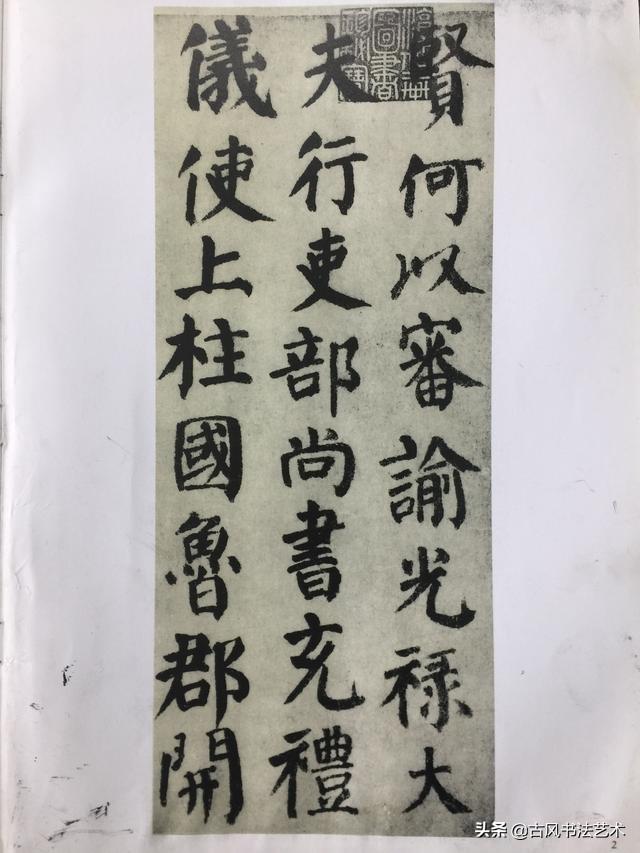 賢何以審諭光禄大
夫行吏部尚書充禮
儀使上柱國魯郡開
2
头条@古风书法艺术